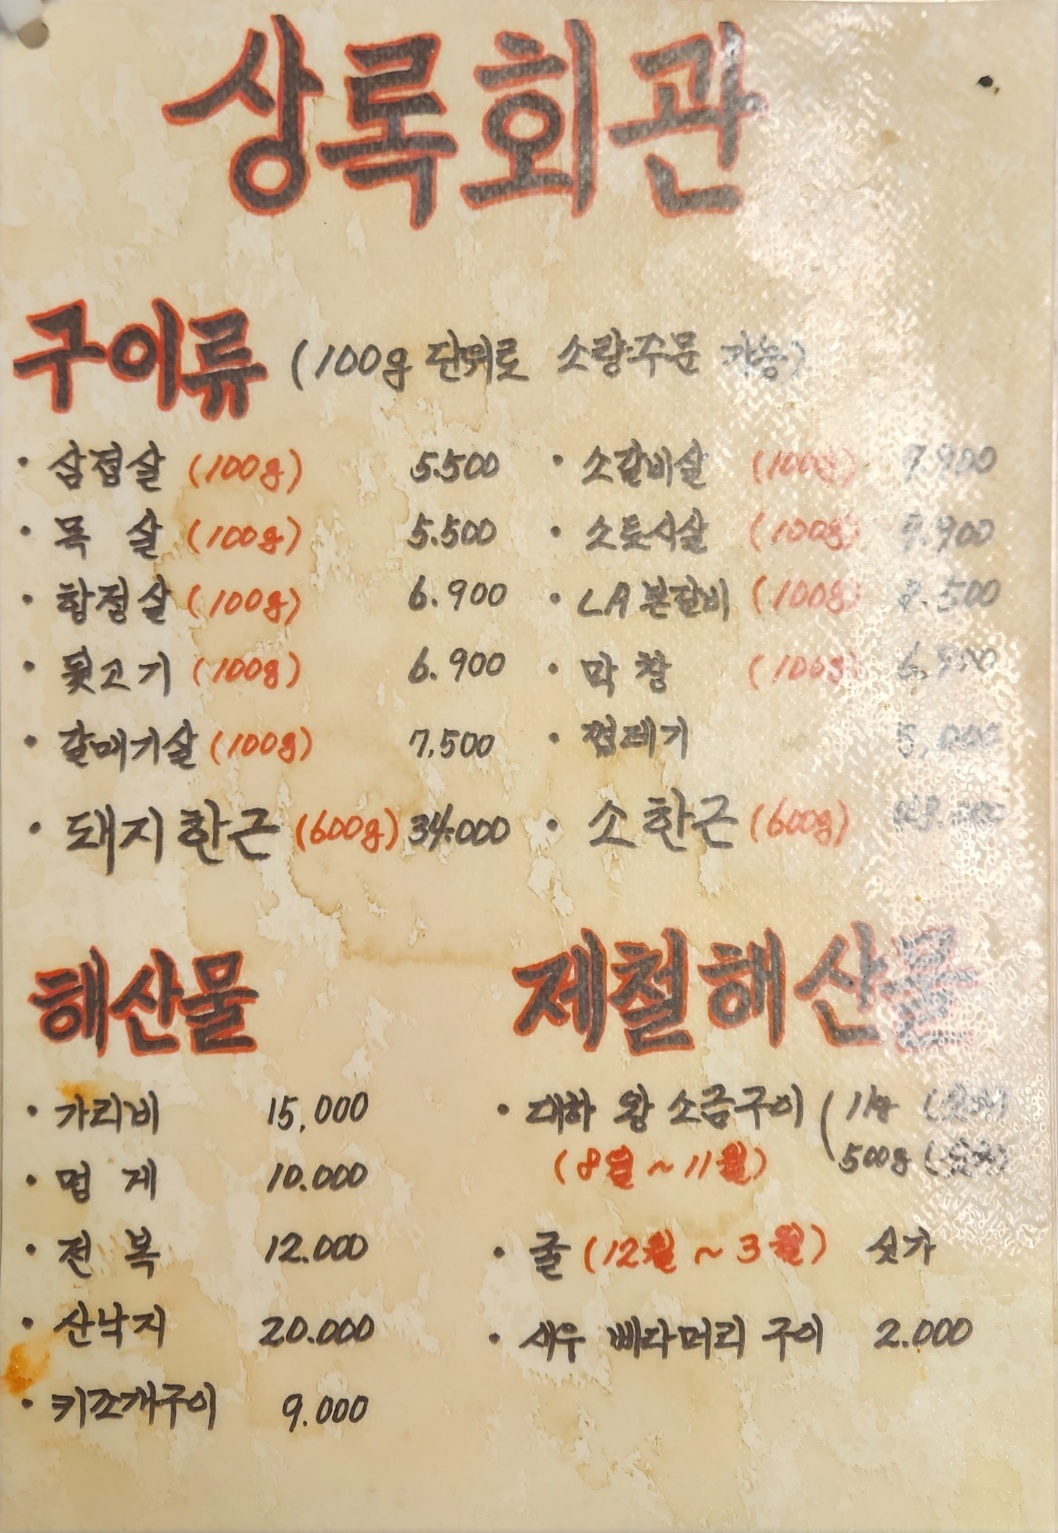 상록회관
구이류 (100g 단위로 소량주문 가능)
· 삼겹살 (100g) 5.500
· 목 살 (100g) 5.500
· 항정살 (100g) 6.900
· 뒷고기 (100g) 6.900
· 갈매기살 (100g) 7,500
· 돼지한근 (600g) 34.000
· 소갈비살 (100g) 9.900
· 소토시살 (100g) 9.900
· LA본갈비 (100g) 8.500
· 막 창 (100g) 6.900
· 껍데기 5,000
· 소한근 (600g)
해산물
· 가리비 15,000
· 멍 게 10.000
· 전 복 12.000
· 산낙지 20.000
· 키조개구이 9.000
제철해산물
· 대하 왕 소금구이 ( 1kg (싯가)
(8월 ~ 11월) 500g (싯가)
· 굴 (12월 ~ 3월) 싯가
· 새우 빠다머리 구이 2.000